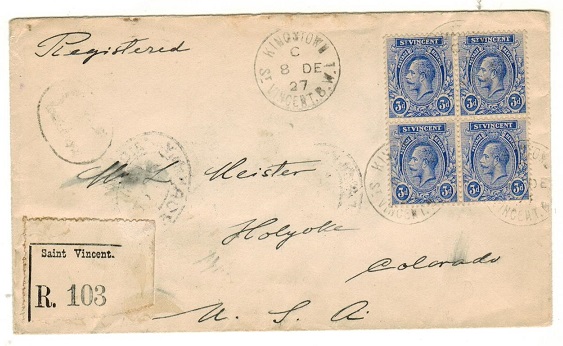 Registered
KINGSTOWN
C
8 DE
27
ST VINCENT. B.W.I.
ST VINCENT
3d 3d
ST VINCENT
3d 3d
ST VINCENT
3d 3d
ST VINCENT
3d 3d
W. L. Meister
Holyoke
Colorado
U. S. A.
Saint Vincent.
R. 103